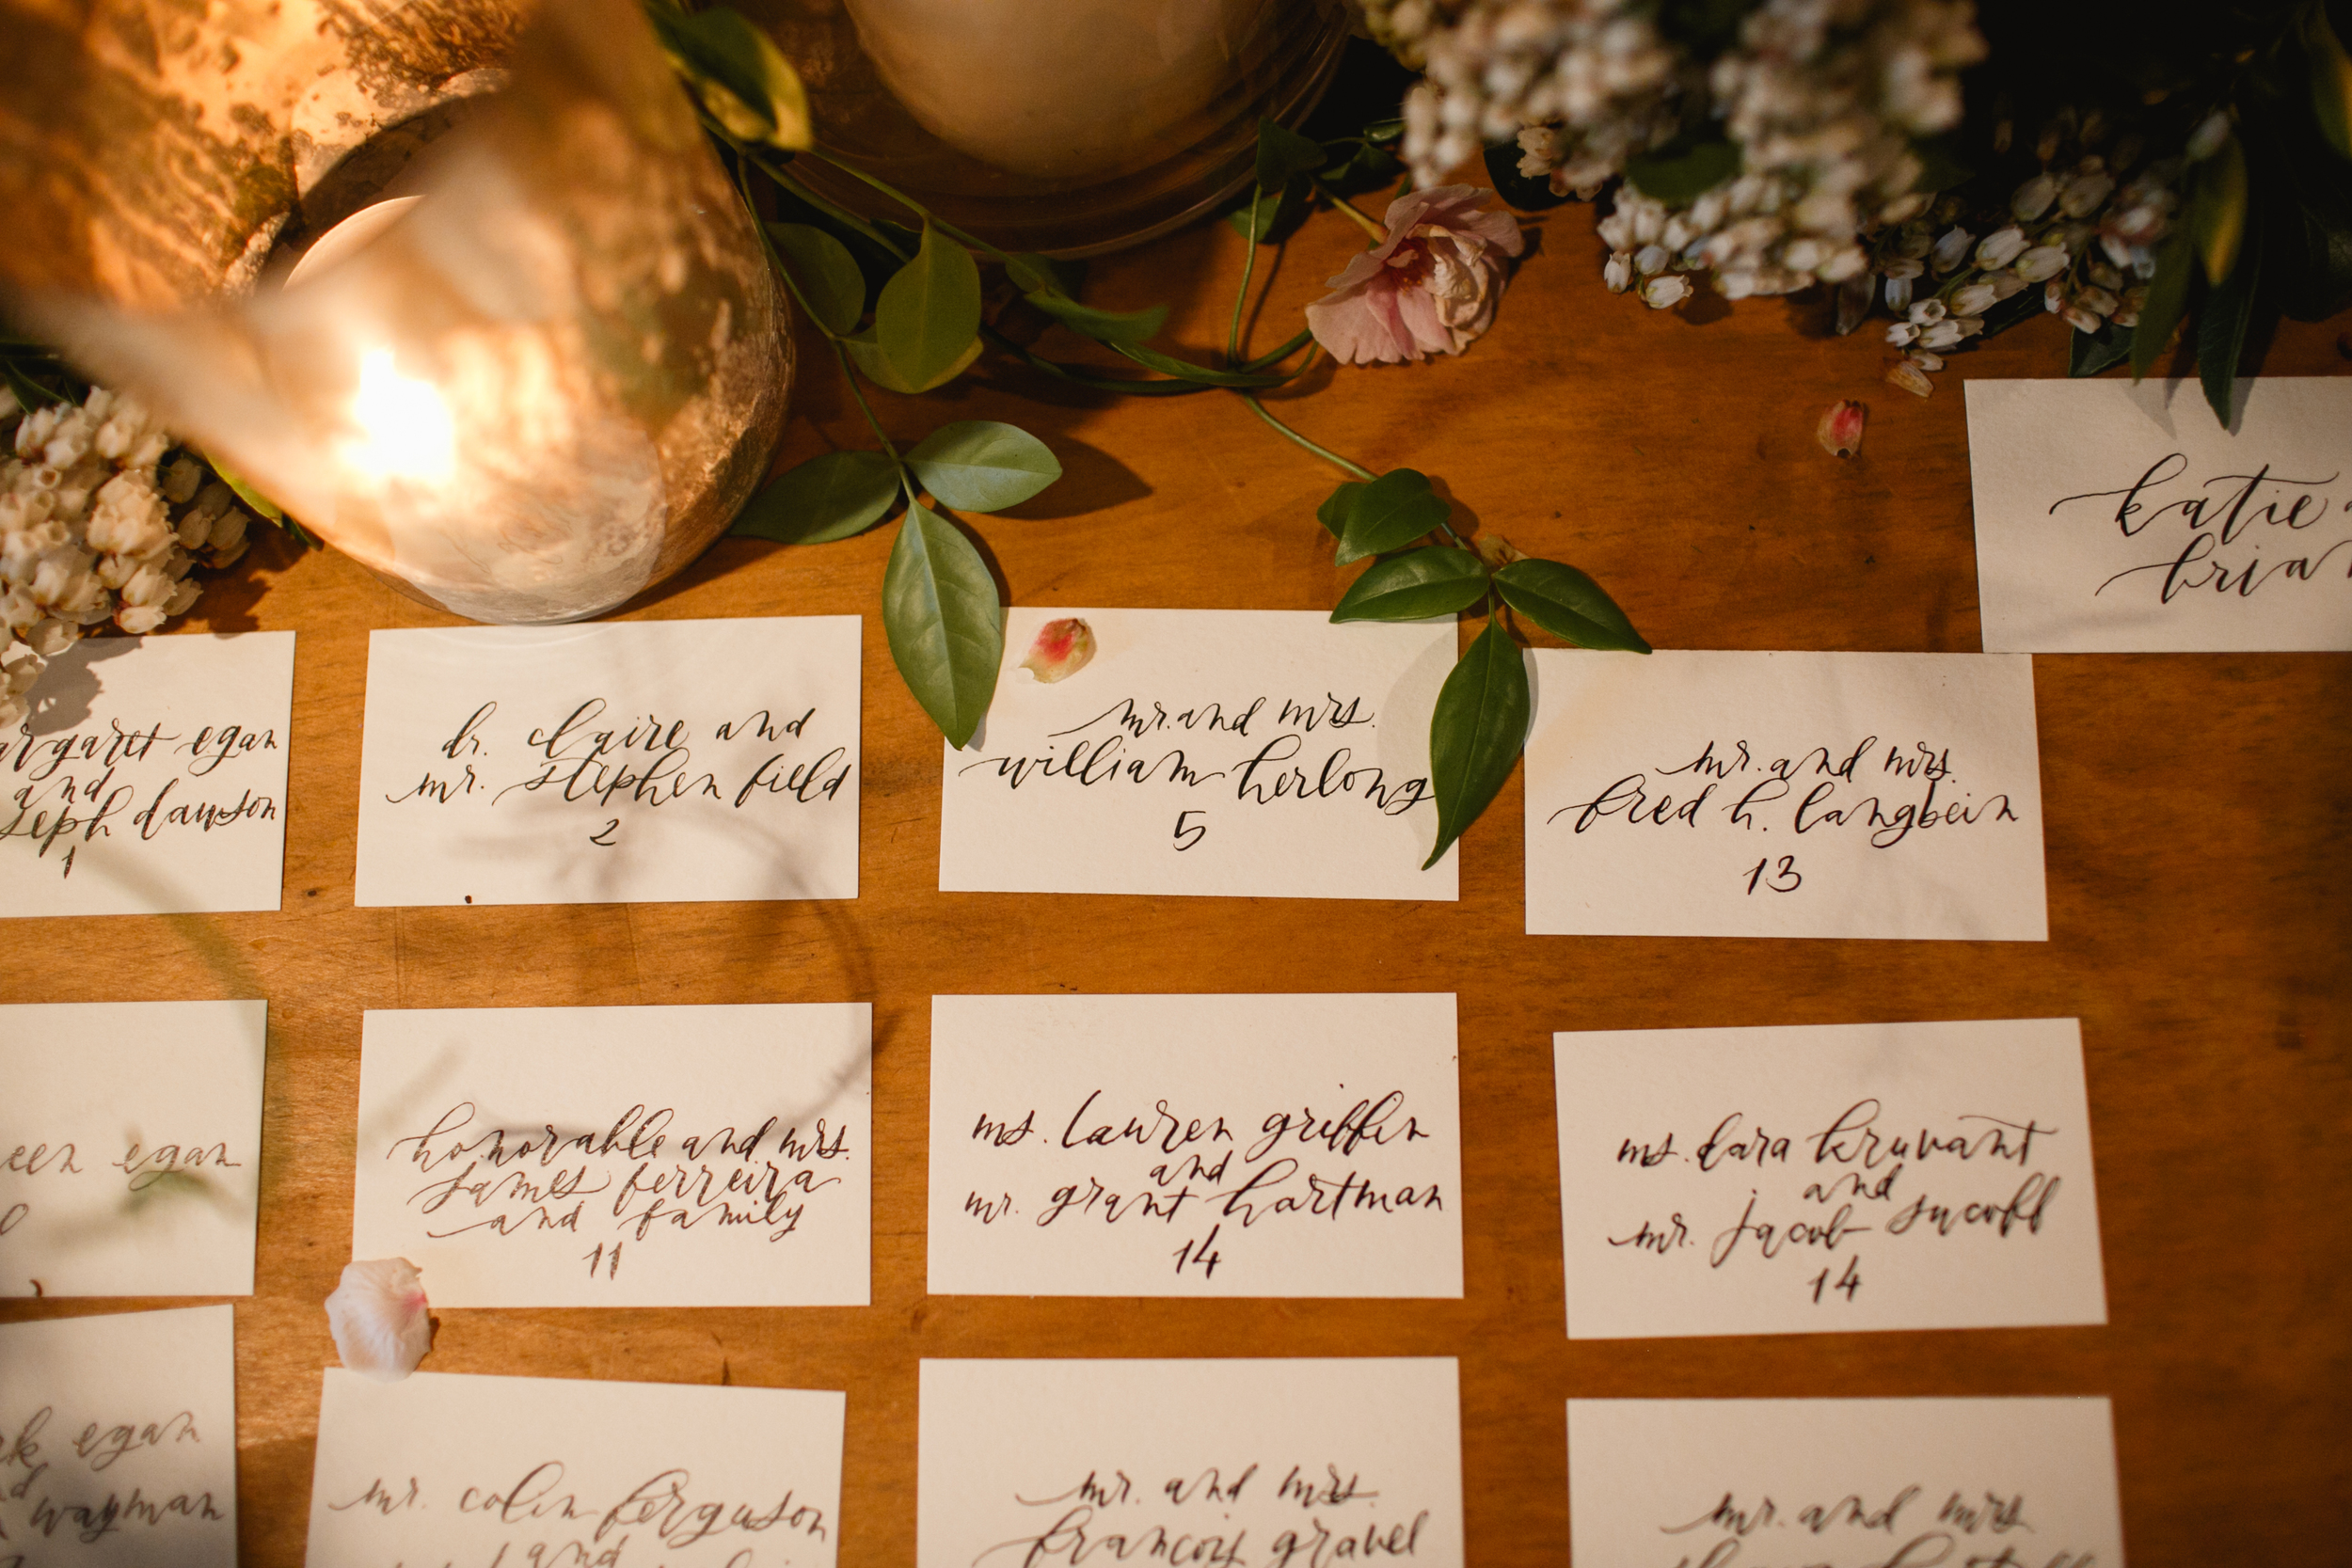 katie
margaret egan
and
joseph dawson
1
dr. claire and
mr. stephen field
2
mr. and mrs.
william herlong
5
mr. and mrs.
fred h. langbein
13
egan
honorable and mrs.
james ferreira
and family
11
ms. lauren griffin
and
mr. grant hartman
14
ms. dara kruvant
and
mr. jacob
14
egan
wayman
mr. colin ferguson
and
mr. and mrs.
francois gravel
mr. and mrs.